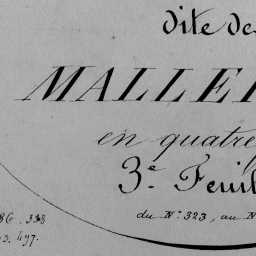 dite des
MALLE
en quatre
3.e Feuil
du N.° 323, au N
86. 338
497.